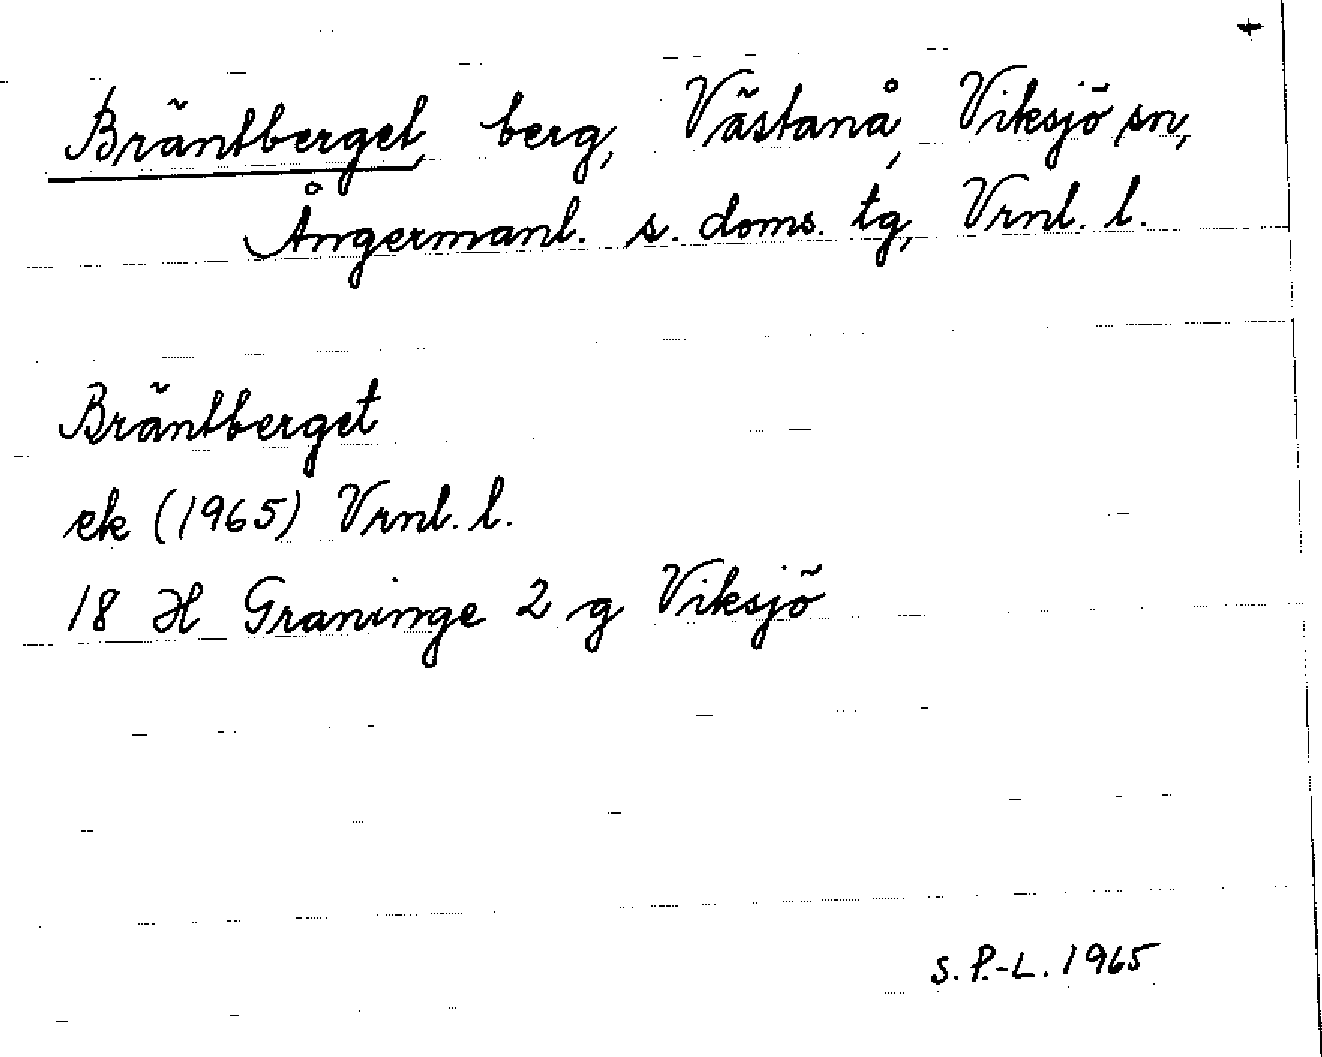 Bräntberget, berg, Västanå, Viksjö sn,
Ångermanl. s. doms. tg, Vrnl. l.
Bräntberget
ek (1965) Vrnl. l.
18 H Graninge 2 g Viksjö
S. P.-L. 1965